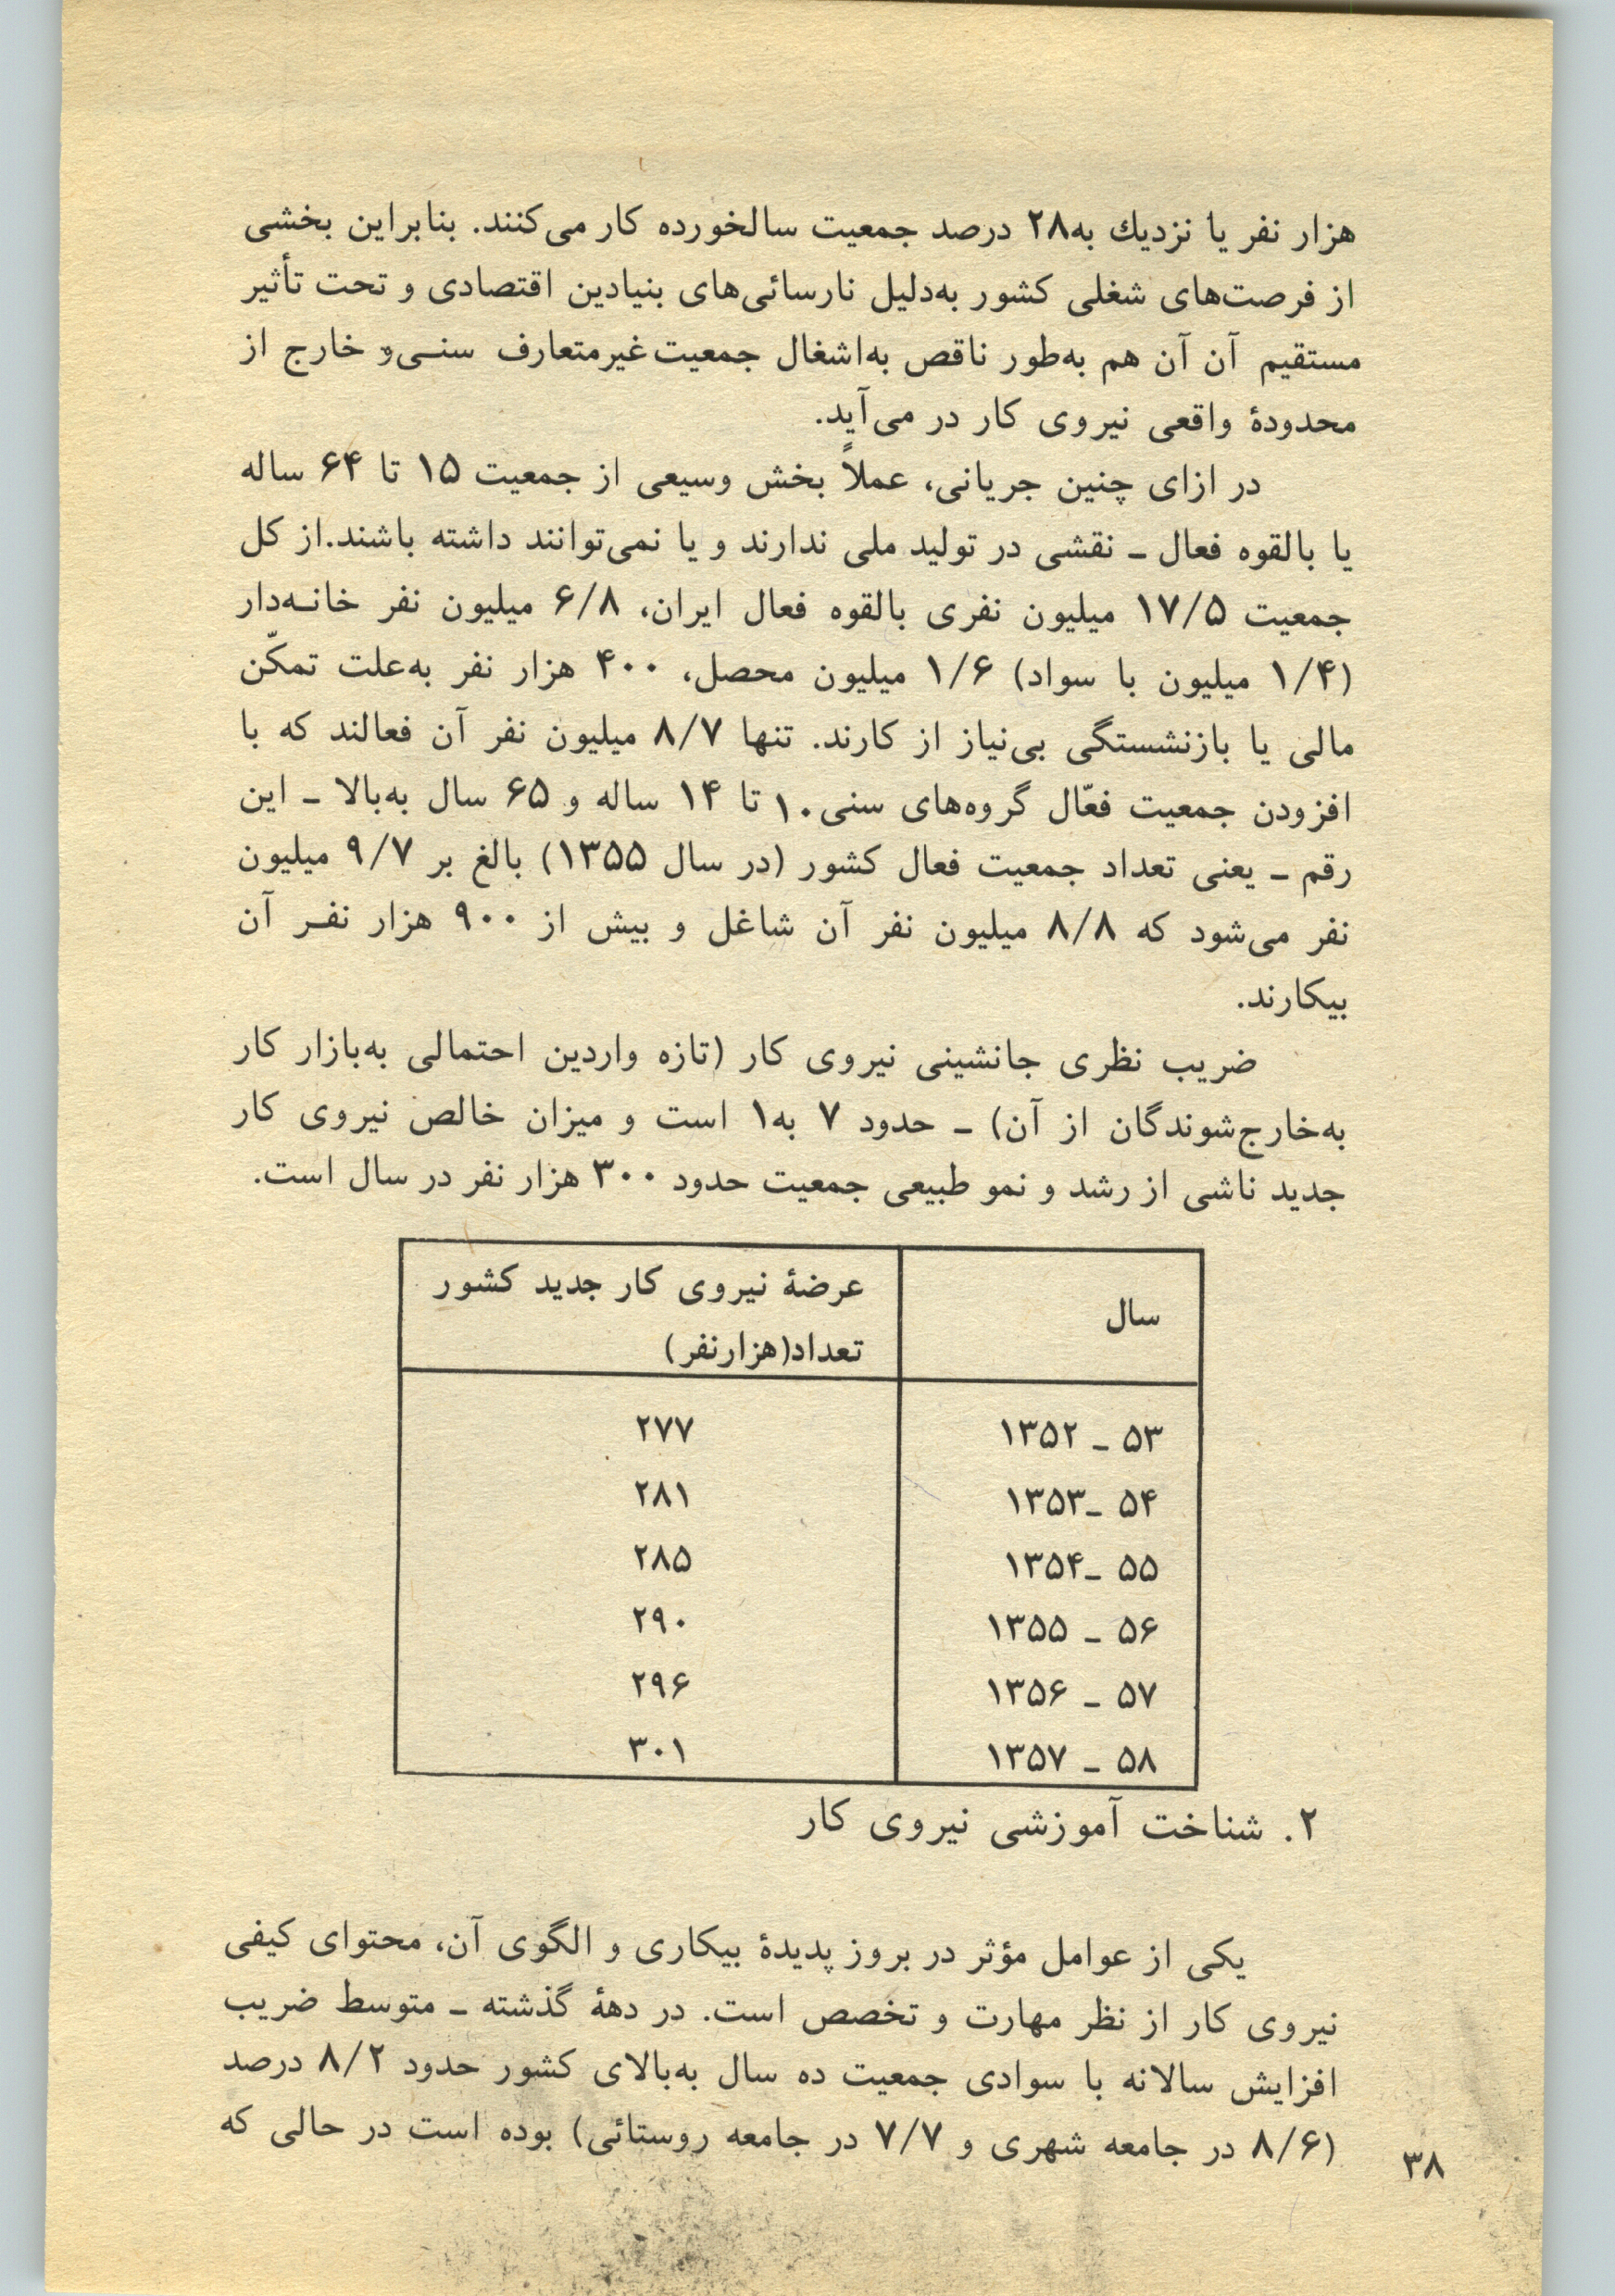 هزار نفر یا نزدیك به۲۸ درصد جمعیت سالخورده کار می‌کنند. بنابراین بخشی
از فرصت‌های شغلی کشور به‌دلیل نارسائی‌های بنیادین اقتصادی و تحت تأثیر
مستقیم آن آن هم به‌طور ناقص به‌اشغال جمعیت غیرمتعارف سنـی‌و خارج از
محدودهٔ واقعی نیروی کار در می‌آید.
در ازای چنین جریانی، عملاً بخش وسیعی از جمعیت ۱۵ تا ۶۴ ساله
یا بالقوه فعال ـ نقشی در تولید ملی ندارند و یا نمی‌توانند داشته باشند.از کل
جمعیت ۱۷/۵ میلیون نفری بالقوه فعال ایران، ۶/۸ میلیون نفر خانـه‌دار
(۱/۴ میلیون با سواد) ۱/۶ میلیون محصل، ۴۰۰ هزار نفر به‌علت تمکّن
مالی یا بازنشستگی بی‌نیاز از کارند. تنها ۸/۷ میلیون نفر آن فعالند که با
افزودن جمعیت فعّال گروه‌های سنی۱۰ تا ۱۴ ساله و ۶۵ سال به‌بالا ـ این
رقم ـ یعنی تعداد جمعیت فعال کشور (در سال ۱۳۵۵) بالغ بر ۹/۷ میلیون
نفر می‌شود که ۸/۸ میلیون نفر آن شاغل و بیش از ۹۰۰ هزار نفـر آن
بیکارند.
ضریب نظری جانشینی نیروی کار (تازه واردین احتمالی به‌بازار کار
به‌خارج‌شوندگان از آن) ـ حدود ۷ به۱ است و میزان خالص نیروی کار
جدید ناشی از رشد و نمو طبیعی جمعیت حدود ۳۰۰ هزار نفر در سال است.
سال عرضهٔ نیروی کار جدید کشور
تعداد(هزارنفر)
۱۳۵۲ ـ ۵۳ ۲۷۷
۱۳۵۳ـ ۵۴ ۲۸۱
۱۳۵۴ـ ۵۵ ۲۸۵
۱۳۵۵ ـ ۵۶ ۲۹۰
۱۳۵۶ ـ ۵۷ ۲۹۶
۱۳۵۷ ـ ۵۸ ۳۰۱
۲. شناخت آموزشی نیروی کار
یکی از عوامل مؤثر در بروز پدیدهٔ بیکاری و الگوی آن، محتوای کیفی
نیروی کار از نظر مهارت و تخصص است. در دههٔ گذشته ـ متوسط ضریب
افزایش سالانه با سوادی جمعیت ده سال به‌بالای کشور حدود ۸/۲ درصد
(۸/۶ در جامعه شهری و ۷/۷ در جامعه روستائی) بوده است در حالی که
۳۸